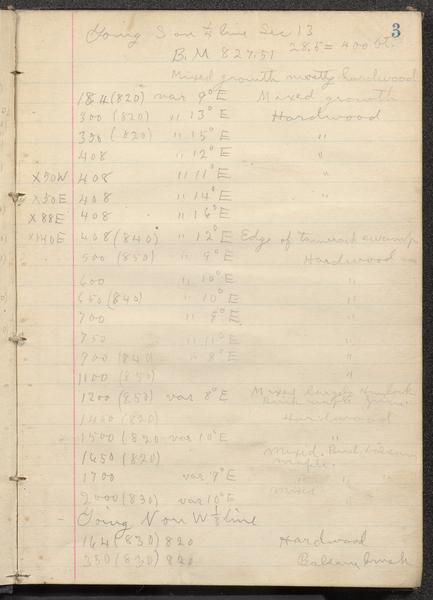 3
Going S on ¼ line Sec 13
B.M 827.51 28.5 = 400 ft.
Mixed growth mostly hardwood
184 (820) var 9°E Mixed growth
300 (820) " 13°E Hardwood
350 (820) " 15°E "
408 " 12°E "
X50W 408 " 11°E "
X50E 408 " 14°E
X88E 408 " 16°E
X140E 408 (840) " 12°E Edge of tamarack swamp
500 (850) " 9°E Hardwood
600 " 10°E "
650 (840) " 10°E "
700 " 9°E "
750 " 11°E "
900 (840) " 8°E "
1100 (850) "
1200 (850) var 8°E Mixed largely Hemlock
Birch maple
1400 (820) Hardwood
1500 (820 var 10°E "
1650 (820) Mixed, Bird, balsam
maple.
1700 var 9°E " "
2000 (830) var 10°E Mixed "
Going N on W ⅛ line
164 (830) 820 Hardwood
350 (830) 820 Balsam